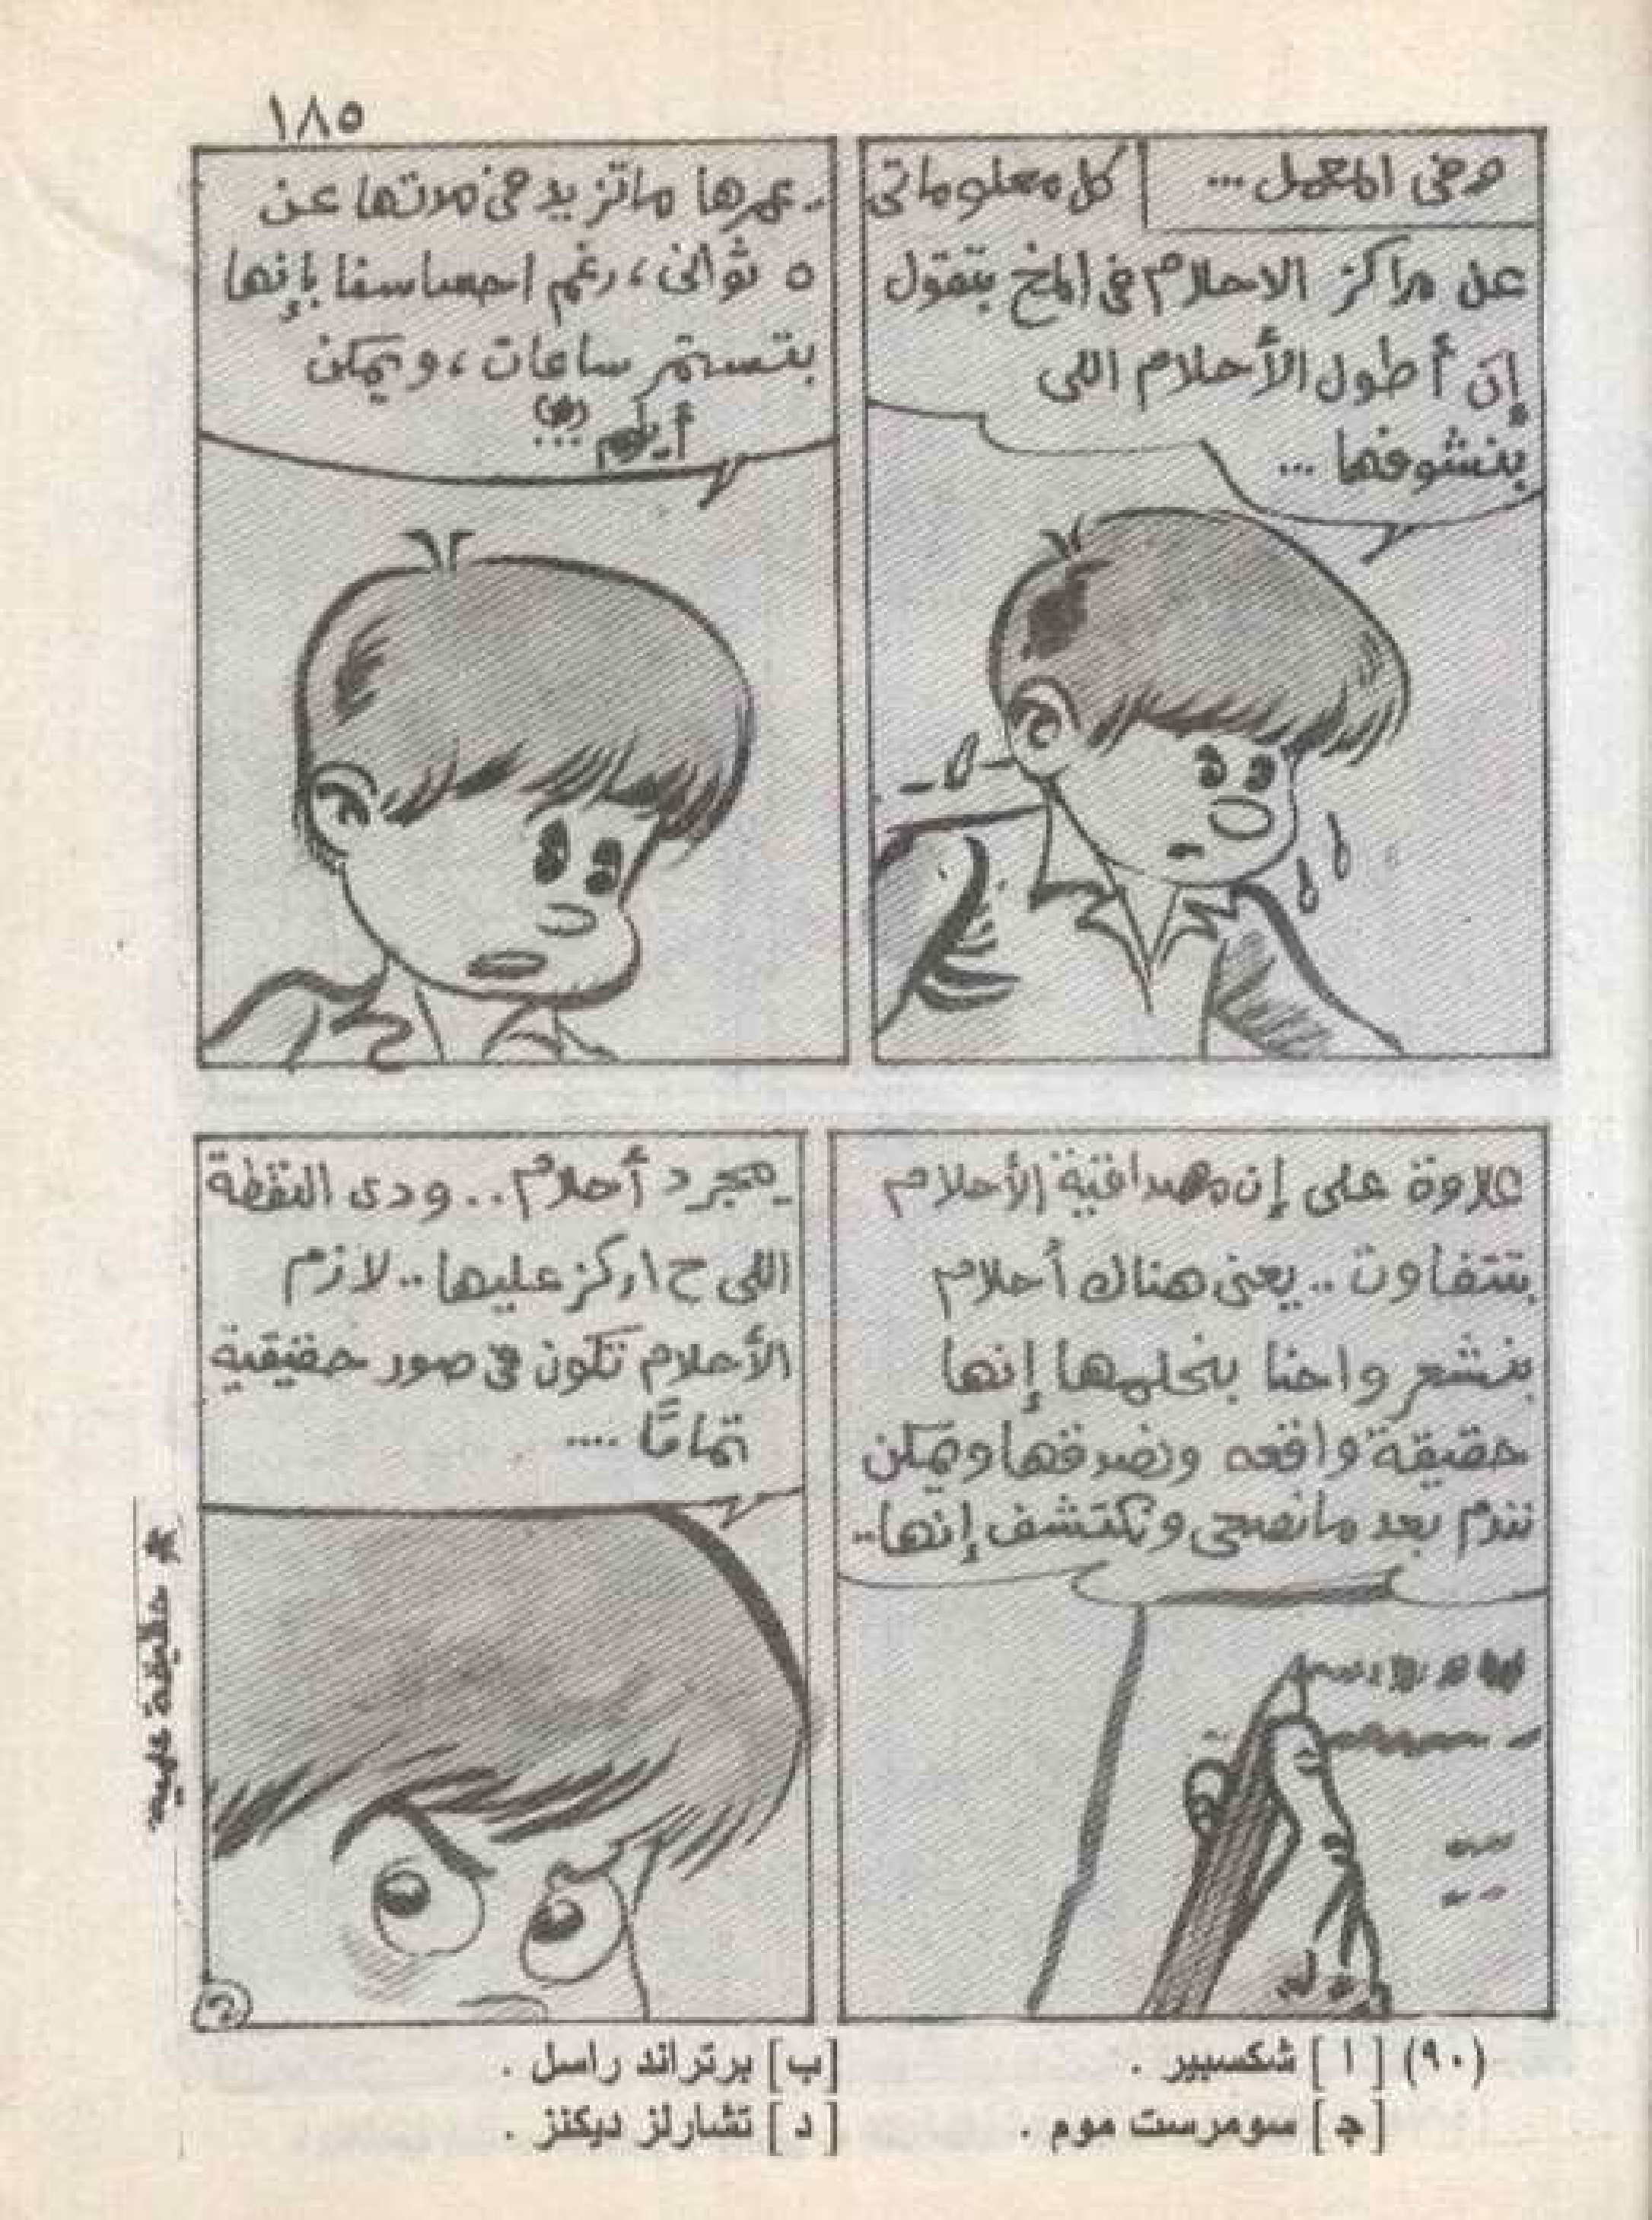 ١٨٥
وفى المعمل ...
كل معلوماتى
عن مراكز الاحلام فى المخ بتقول
إن أطول الأحلام اللى
بنشوفها ...
ـ عمرها ماتزيد فى مدتها عن
٥ ثوانى ، رغم احساسنا بإنها
بتستمر ساعات ، ويمكن
أيام (*) ...
علاوة على إن مصداقية الأحلام
بتتفاوت .. يعنى هناك أحلام
بنشعر واحنا بنحلمها إنها
حقيقة واقعه ونصدقها ويمكن
نندم بعد مانصحى ونكتشف إنها ..
ـ مجرد أحلام .. ودى النقطة
اللى ح اركز عليها .. لازم
الأحلام تكون فى صور حقيقية
تمامًا ....
* حقيقة علمية
٢
(٩٠) [ ا ] شكسبير . [ب] برتراند راسل .
[ج] سومرست موم . [ د ] تشارلز ديكنز .